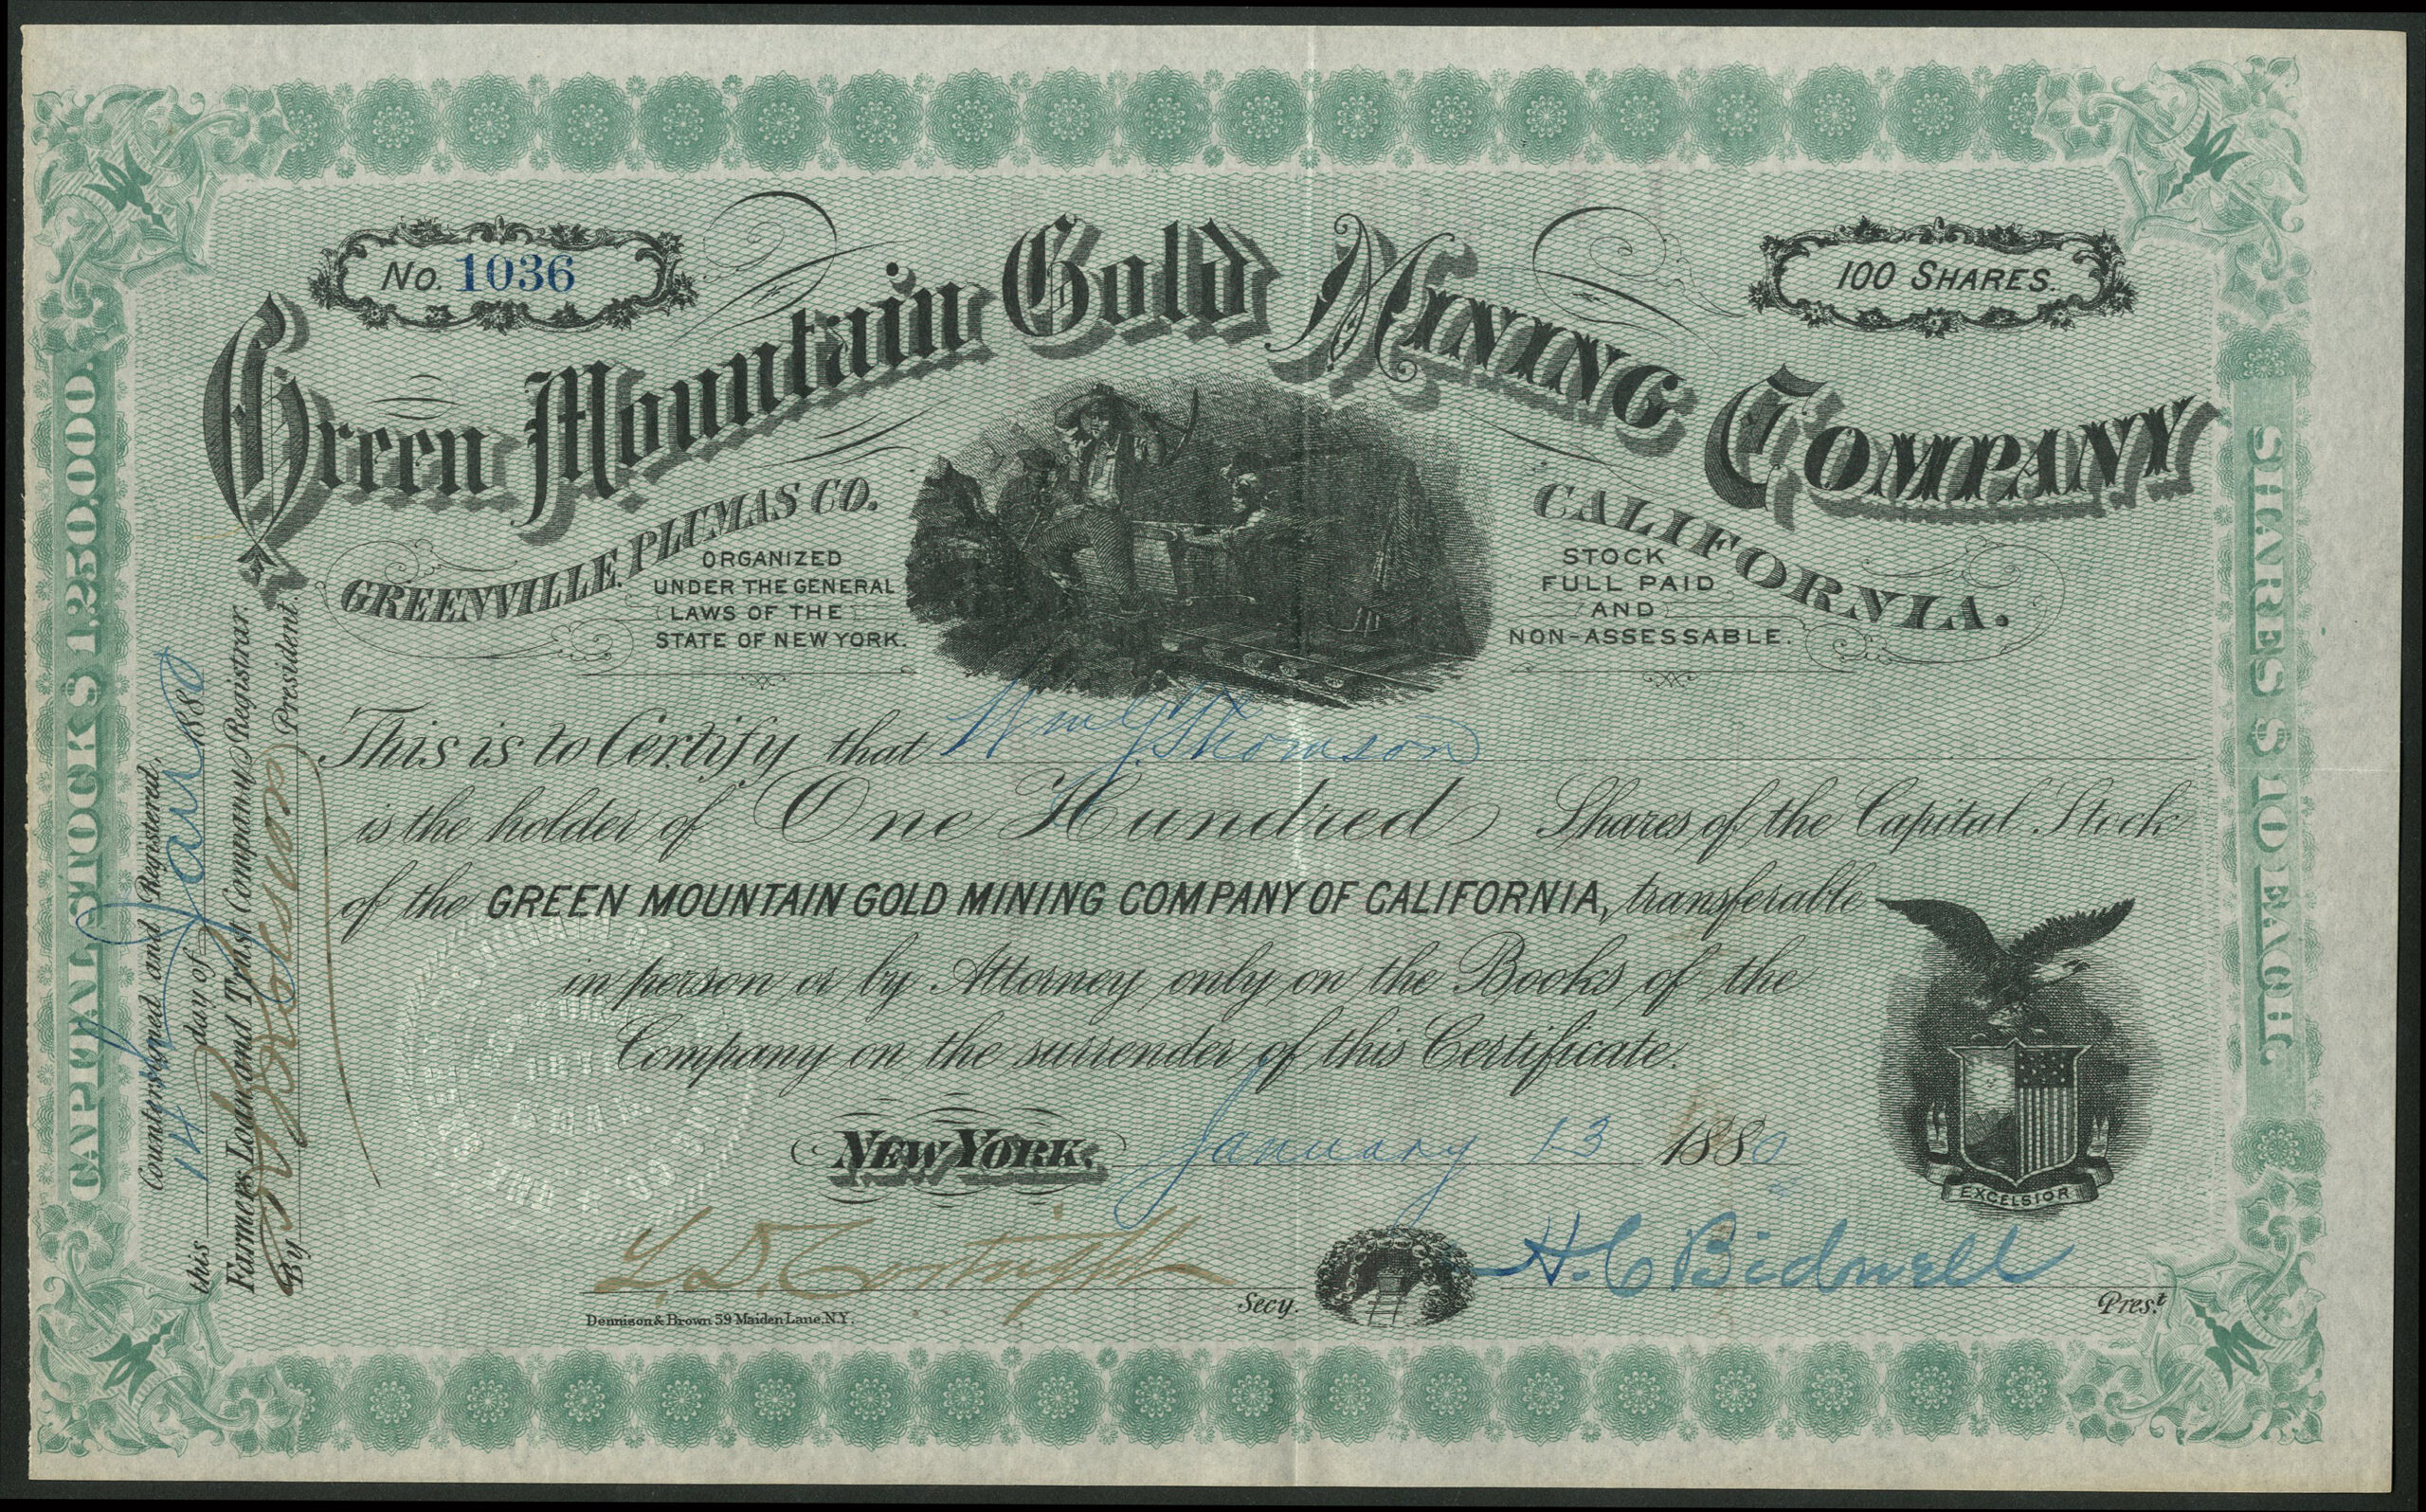 No. 1036
100 SHARES.
Green Mountain Gold MINING COMPANY
GREENVILLE, PLUMAS CO.
CALIFORNIA.
ORGANIZED
UNDER THE GENERAL
LAWS OF THE
STATE OF NEW YORK.
STOCK
FULL PAID
AND
NON-ASSESSABLE.
This is to Certify that Wm J. Thomson
is the holder of One Hundred Shares of the Capital Stock
of the GREEN MOUNTAIN GOLD MINING COMPANY OF CALIFORNIA, transferable
in person or by Attorney only on the Books of the
Company on the surrender of this Certificate.
NEW YORK, January 13 1880
EXCELSIOR
L. D. Cortright Secy.
H. C Bidwell Pres.t
Dennison & Brown 59 Maiden Lane, N.Y.
CAPITAL STOCK $ 1,250.000.
Countersigned and Registered,
this 14 day of Jan 1880
Farmers Loan and Trust Company, Registrar.
By President.
SHARES $ 10 EACH